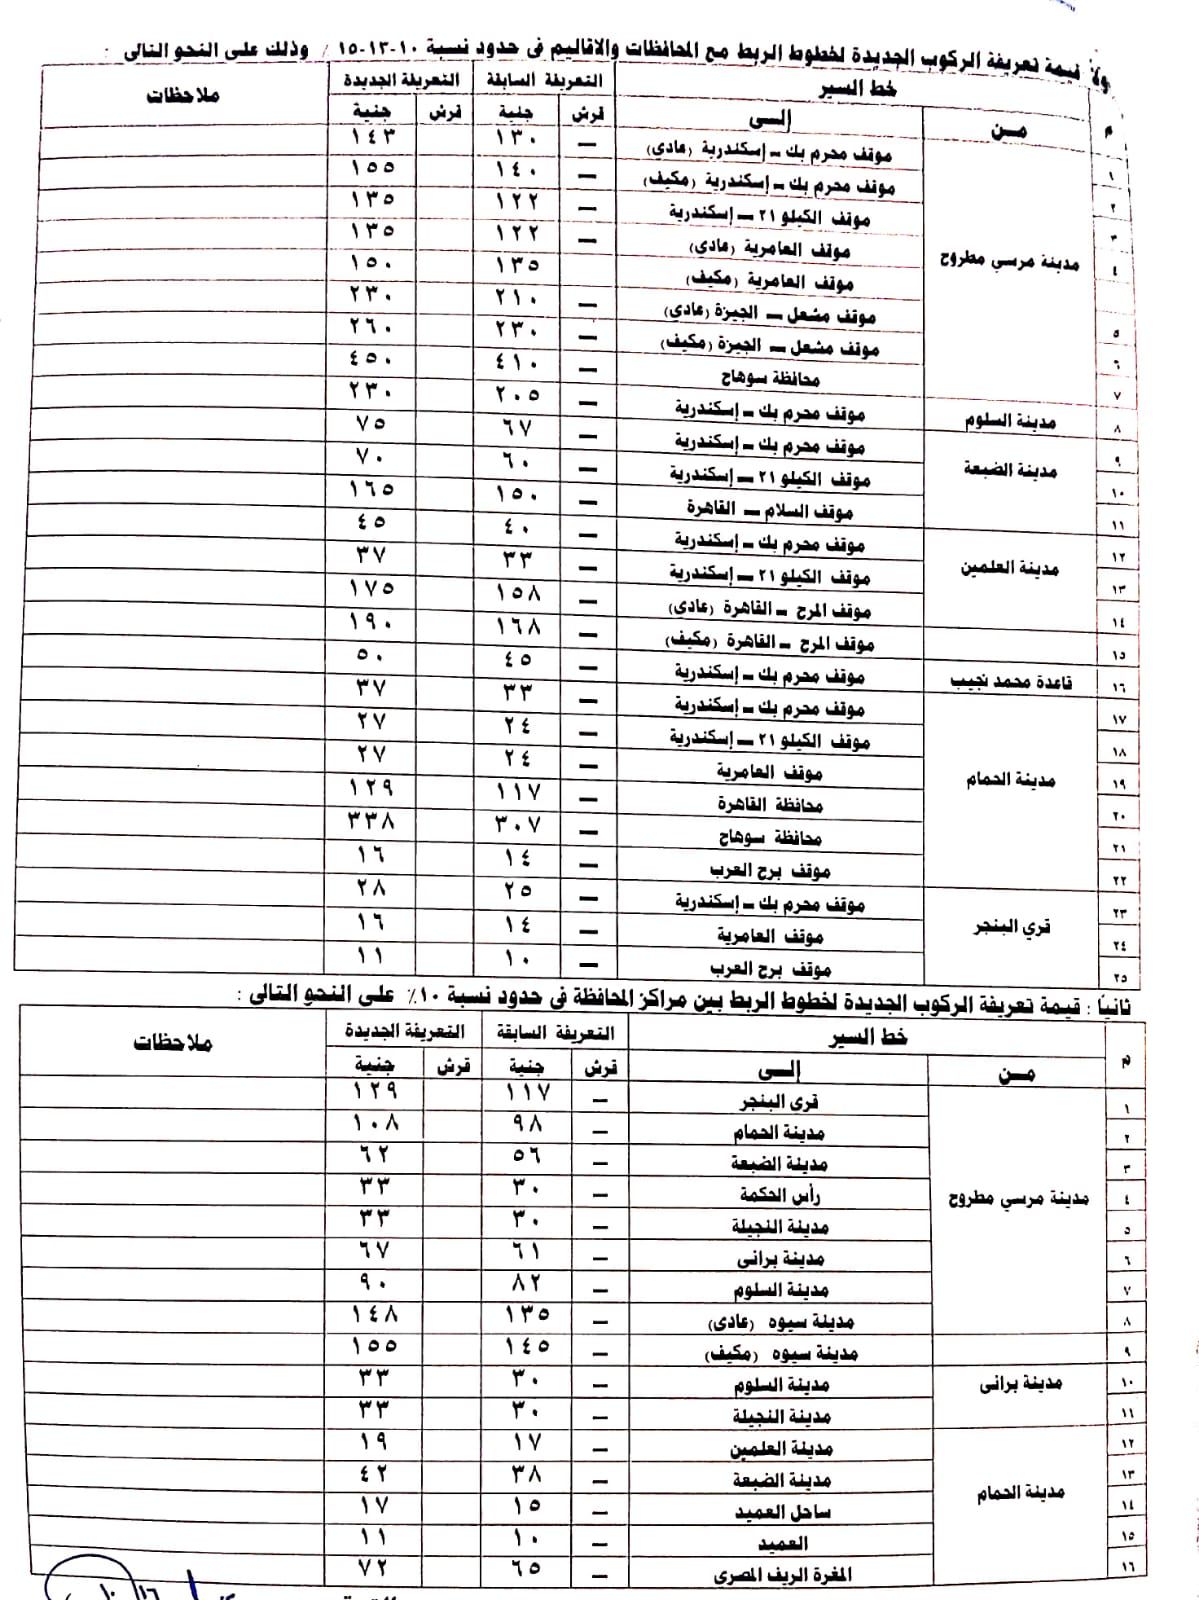 ولا قيمة تعريفة الركوب الجديدة لخطوط الربط مع المحافظات والاقاليم فى حدود نسبة ١٠-١٣-١٥ ٪ وذلك على النحو التالى :
م خط السير التعريفة السابقة التعريفة الجديدة ملاحظات
مـن إلـى قرش جنية قرش جنية
١ مدينة مرسي مطروح موقف محرم بك – إسكندرية (عادى) – ١٣٠ ١٤٣
٢ موقف محرم بك – إسكندرية (مكيف) – ١٤٠ ١٥٥
٣ موقف الكيلو ٢١ – إسكندرية – ١٢٢ ١٣٥
٤ موقف العامرية (عادى) – ١٢٢ ١٣٥
موقف العامرية (مكيف) ١٣٥ ١٥٠
٥ موقف مشعل – الجيزة (عادى) – ٢١٠ ٢٣٠
٦ موقف مشعل – الجيزة (مكيف) – ٢٣٠ ٢٦٠
٧ محافظة سوهاج – ٤١٠ ٤٥٠
٨ مدينة السلوم موقف محرم بك – إسكندرية – ٢٠٥ ٢٣٠
٩ مدينة الضبعة موقف محرم بك – إسكندرية – ٦٧ ٧٥
١٠ موقف الكيلو ٢١ – إسكندرية – ٦٠ ٧٠
١١ موقف السلام – القاهرة – ١٥٠ ١٦٥
١٢ مدينة العلمين موقف محرم بك – إسكندرية – ٤٠ ٤٥
١٣ موقف الكيلو ٢١ – إسكندرية – ٣٣ ٣٧
١٤ موقف المرج – القاهرة (عادى) – ١٥٨ ١٧٥
١٥ موقف المرج – القاهرة (مكيف) – ١٦٨ ١٩٠
١٦ قاعدة محمد نجيب موقف محرم بك – إسكندرية – ٤٥ ٥٠
١٧ مدينة الحمام موقف محرم بك – إسكندرية – ٣٣ ٣٧
١٨ موقف الكيلو ٢١ – إسكندرية – ٢٤ ٢٧
١٩ موقف العامرية – ٢٤ ٢٧
٢٠ محافظة القاهرة – ١١٧ ١٢٩
٢١ محافظة سوهاج – ٣٠٧ ٣٣٨
٢٢ موقف برج العرب – ١٤ ١٦
٢٣ قري البنجر موقف محرم بك – إسكندرية – ٢٥ ٢٨
٢٤ موقف العامرية – ١٤ ١٦
٢٥ موقف برج العرب – ١٠ ١١
ثانيًا : قيمة تعريفة الركوب الجديدة لخطوط الربط بين مراكز المحافظة فى حدود نسبة ١٠٪ على النحو التالى :
م خط السير التعريفة السابقة التعريفة الجديدة ملاحظات
مـن إلـى قرش جنية قرش جنية
١ مدينة مرسي مطروح قرى البنجر – ١١٧ ١٢٩
٢ مدينة الحمام – ٩٨ ١٠٨
٣ مدينة الضبعة – ٥٦ ٦٢
٤ رأس الحكمة – ٣٠ ٣٣
٥ مدينة النجيلة – ٣٠ ٣٣
٦ مدينة برانى – ٦١ ٦٧
٧ مدينة السلوم – ٨٢ ٩٠
٨ مدينة سيوه (عادى) – ١٣٥ ١٤٨
٩ مدينة سيوه (مكيف) – ١٤٥ ١٥٥
١٠ مدينة برانى مدينة السلوم – ٣٠ ٣٣
١١ مدينة النجيلة – ٣٠ ٣٣
١٢ مدينة الحمام مدينة العلمين – ١٧ ١٩
١٣ مدينة الضبعة – ٣٨ ٤٢
١٤ ساحل العميد – ١٥ ١٧
١٥ العميد – ١٠ ١١
١٦ المغرة الريف المصرى – ٦٥ ٧٢